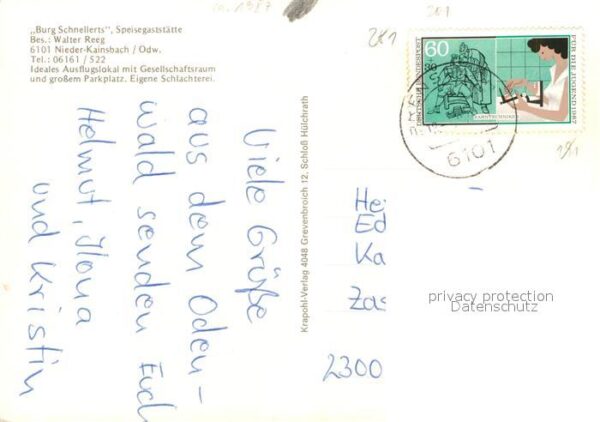 ca. 1987
281
281
„Burg Schnellerts“, Speisegaststätte
Bes.: Walter Reeg
6101 Nieder-Kainsbach / Odw.
Tel.: 06161 / 522
Ideales Ausflugslokal mit Gesellschaftsraum
und großem Parkplatz. Eigene Schlachterei.
Viele Grüße
aus dem Oden-
wald senden Euch
Helmut, Ilona
und Kristin
Krapohl-Verlag 4048 Grevenbroich 12, Schloß Hülchrath
60
+30
DEUTSCHE BUNDESPOST
FÜR DIE JUGEND 1987
ZAHNTECHNIKER
6101
281
He
Ed
Ka
Zas
2300
privacy protection
Datenschutz